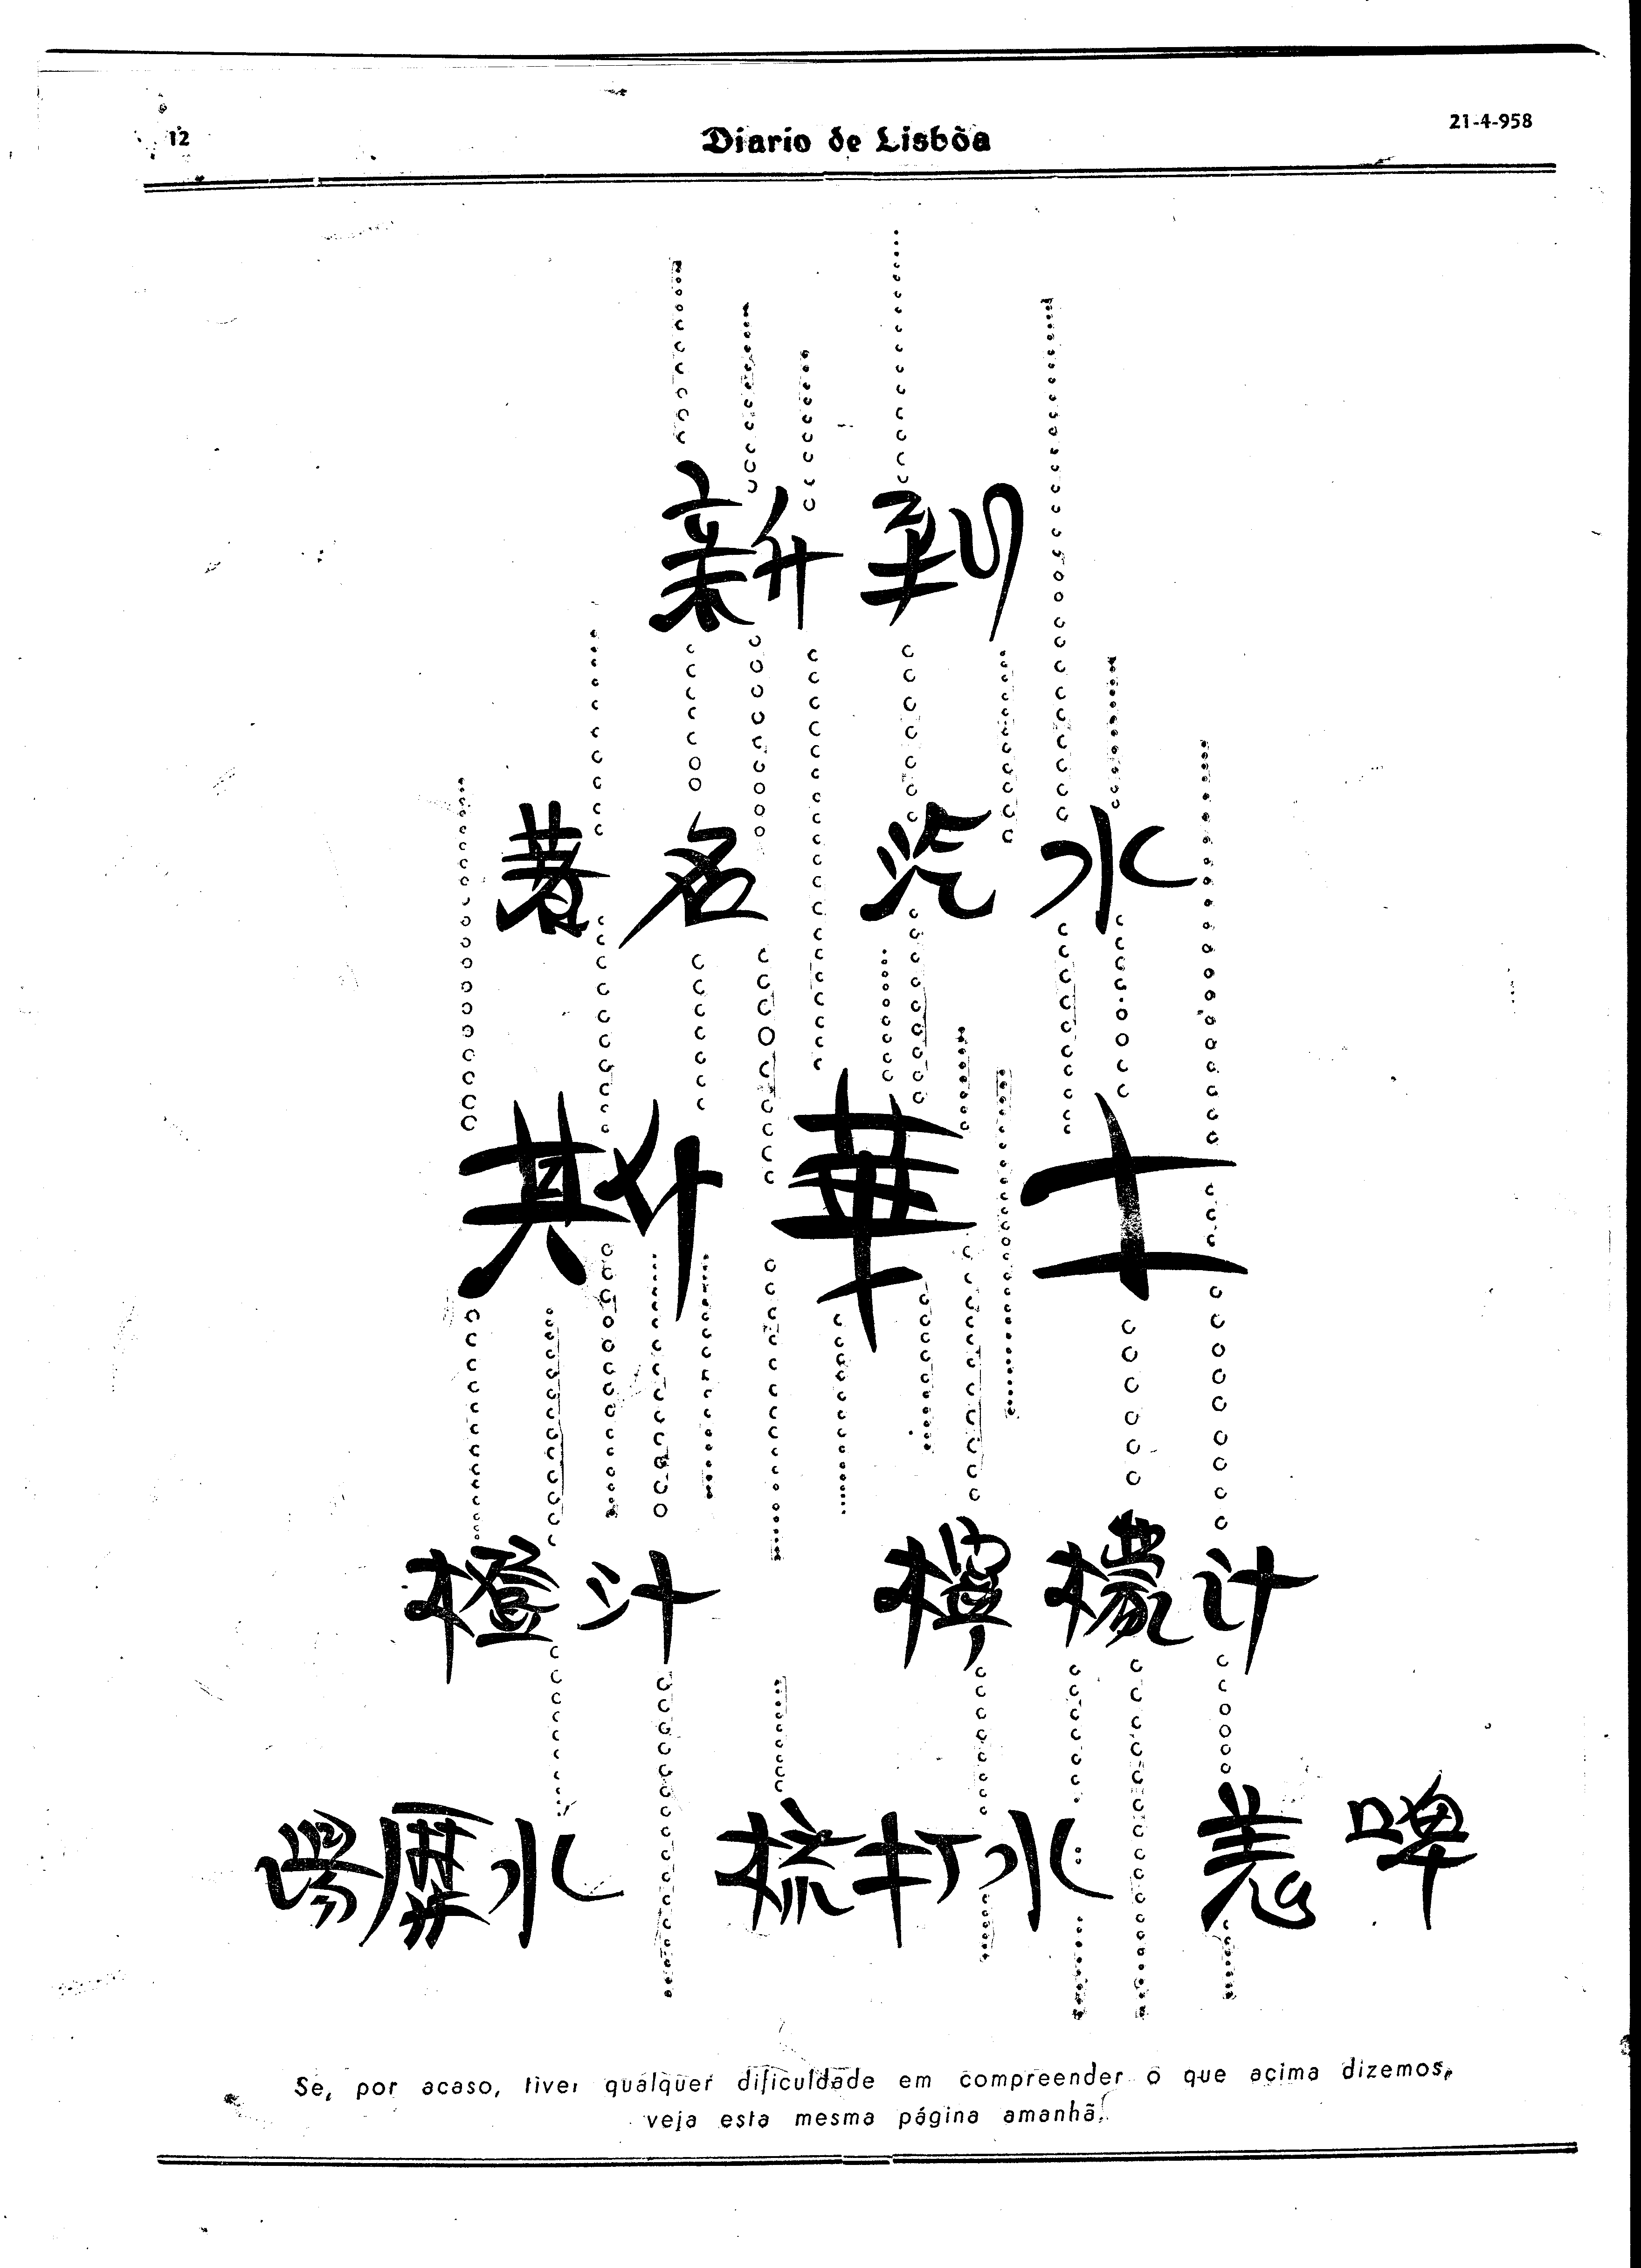 12 Diario de Lisbôa 21-4-958
新到
著名 汽水
斯華士
橙汁 檸檬汁
梳打水 羗啤
Se, por acaso, tiver qualquer dificuldade em compreender o que acima dizemos,
veja esta mesma página amanhã.